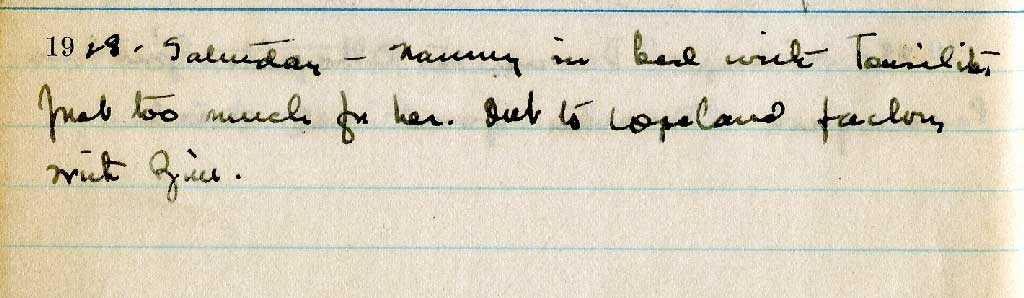 1928. Saturday - Nanny in bed with Tonsilitis
Just too much for her. Out to Copeland factory
with